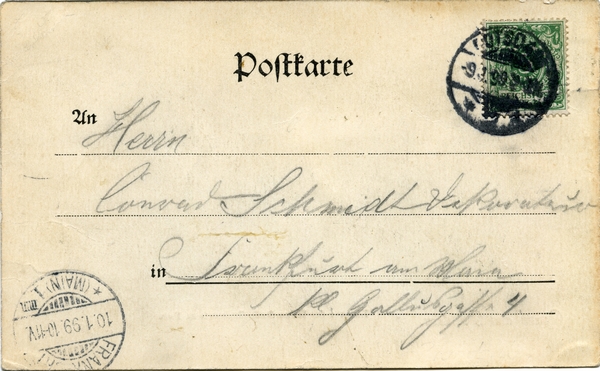 Postkarte
POTSDAM
9.1.99
An Herrn
Conrad Schmidt Dekorateur
in Frankfurt am Main
kl. Gallusgasse 4
FRANKFURT
(MAIN) 1
10.1.99.10-11V.